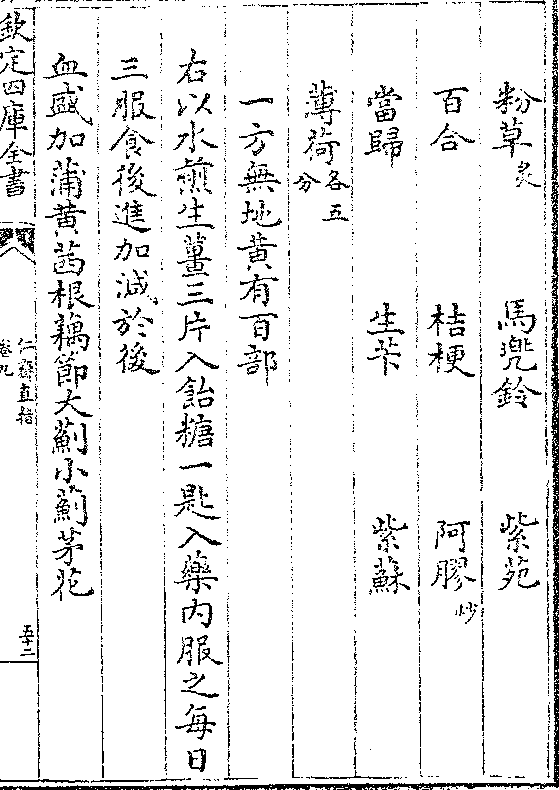 粉草炙 馬兠鈴 紫菀
百合 桔梗 阿膠炒
當歸 生芐 紫蘇
薄荷各五分
一方無地黄有百部
右以水煎生薑三片入飴糖一匙入藥内服之每日
三服食後進加減於後
血盛加蒲黄茜根藕節大薊小薊茅花
欽定四庫全書
仁齋直指
卷九
五十二